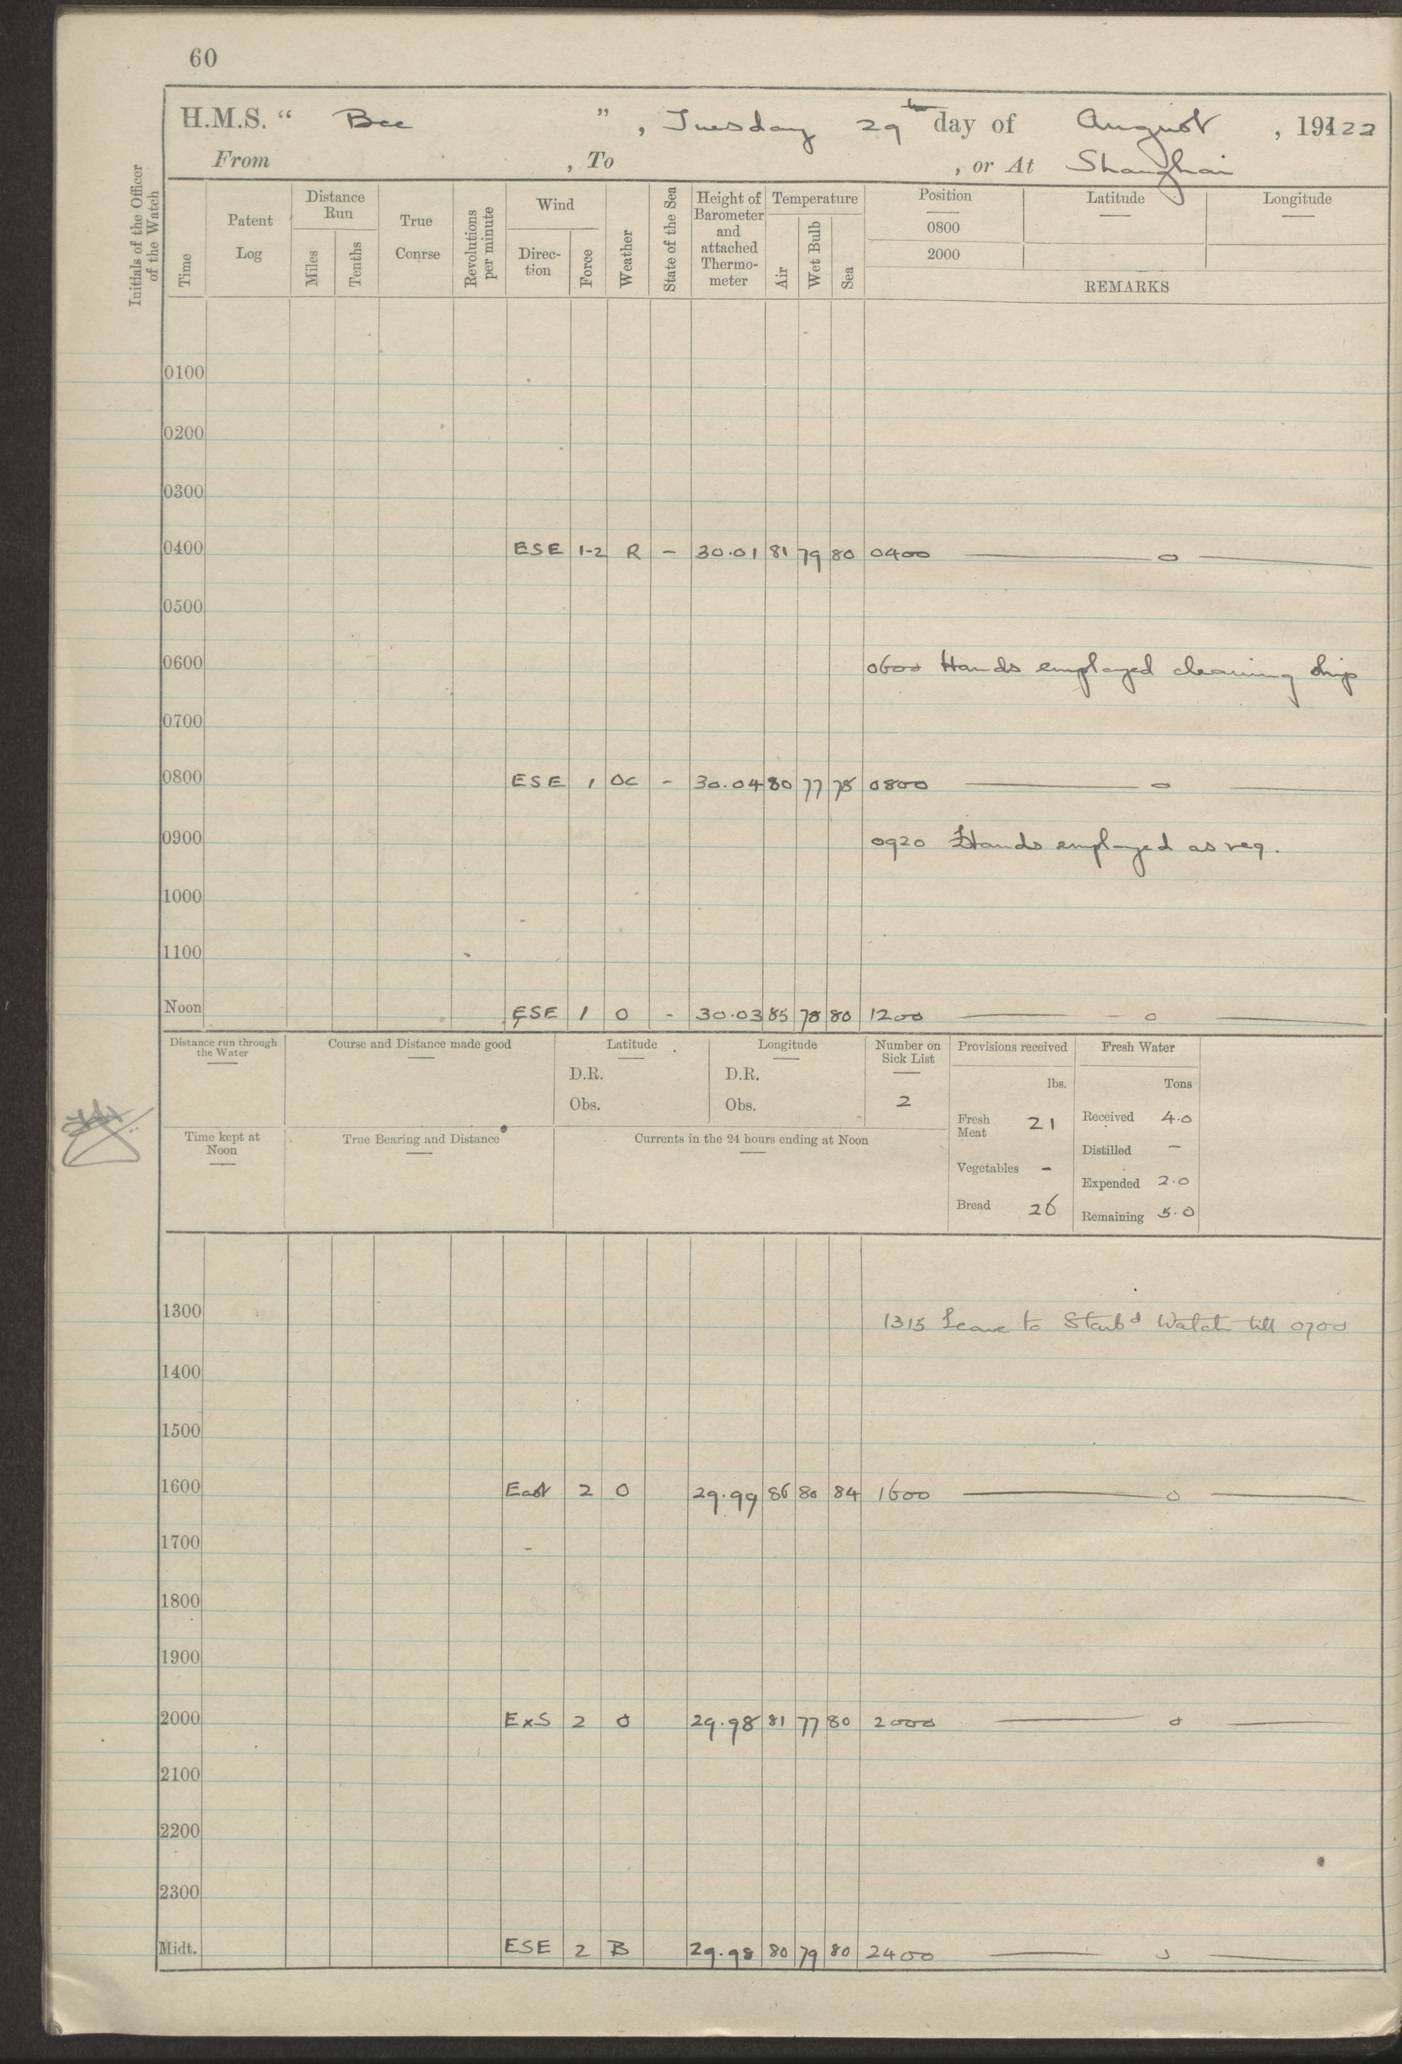 60
H.M.S. “ Bee ” , Tuesday 29th day of August , 19122
From , To , or At Shanghai
Initials of the Officer of the Watch
Time
Patent Log
Distance Run
Miles
Tenths
True Conrse
Revolutions per minute
Wind
Direc-tion
Force
Weather
State of the Sea
Height of Barometer and attached Thermo-meter
Temperature
Air
Wet Bulb
Sea
Position Latitude Longitude
0800
2000
REMARKS
0100
0200
0300
0400 ESE 1-2 R - 30.01 81 79 80 0400 — o —
0500
0600 0600 Hands employed cleaning ship
0700
0800 ESE 1 OC - 30.04 80 77 78 0800 — o —
0900 0920 Hands employed as req.
1000
1100
Noon ESE 1 O - 30.03 85 78 80 1200 — o —
Distance run through the Water
Course and Distance made good
Latitude
D.R.
Obs.
Longitude
D.R.
Obs.
Number on Sick List
2
Provisions received
lbs.
Fresh Meat 21
Vegetables -
Bread 26
Fresh Water
Tons
Received 4.0
Distilled -
Expended 2.0
Remaining 5.0
Time kept at Noon
True Bearing and Distance
Currents in the 24 hours ending at Noon
1300 1315 Leave to Starbd Watch till 0700
1400
1500
1600 East 2 O 29.99 86 80 84 1600 — o —
1700
1800
1900
2000 ExS 2 O 29.98 81 77 80 2000 — o —
2100
2200
2300
Midt. ESE 2 B 29.98 80 79 80 2400 — o —